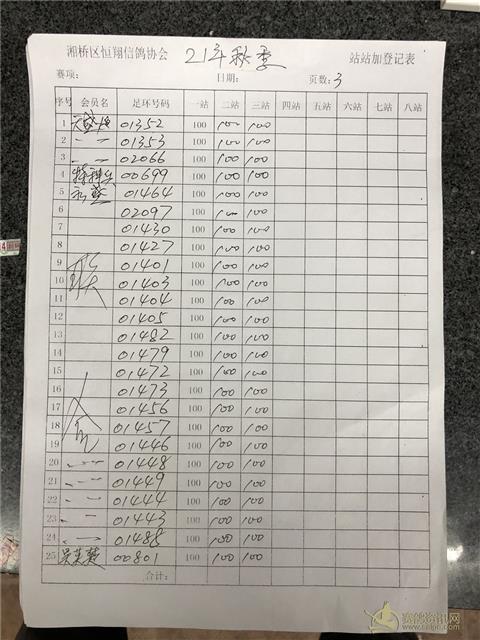 湘桥区恒翔信鸽协会 21年秋季 站站加登记表
赛项: 日期: 页数: 3
序号 会员名 足环号码 一站 二站 三站 四站 五站 六站 七站 八站
1 01352 100 100 100
2 〃 〃 01353 100 100 100
3 〃 〃 02066 100 100 100
4 特种兵 00699 100 100 100
5 01464 100 100 100
6 02097 100 100 100
7 01430 100 100 100
8 01427 100 100 100
9 01401 100 100 100
10 01403 100 100 100
11 01404 100 100 100
12 01405 100 100 100
13 01482 100 100 100
14 01479 100 100 100
15 01472 100 100 100
16 01473 100 100 100
17 01456 100 100 100
18 01457 100 100 100
19 01446 100 100 100
20 01448 100 100 100
21 01449 100 100 100
22 01444 100 100 100
23 01443 100 100 100
24 01488 100 100 100
25 00801 100 100 100
合计: